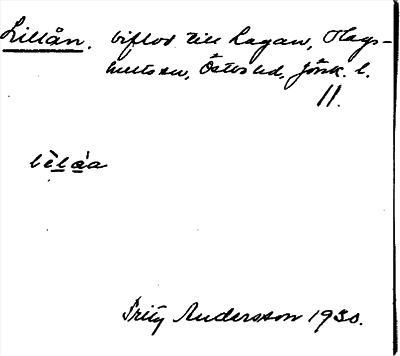 Lillån. biflod till Lagan, Hags-
hults sn, Östbo hd, Jönk. l.
11.
Fritz Andersson 1930.